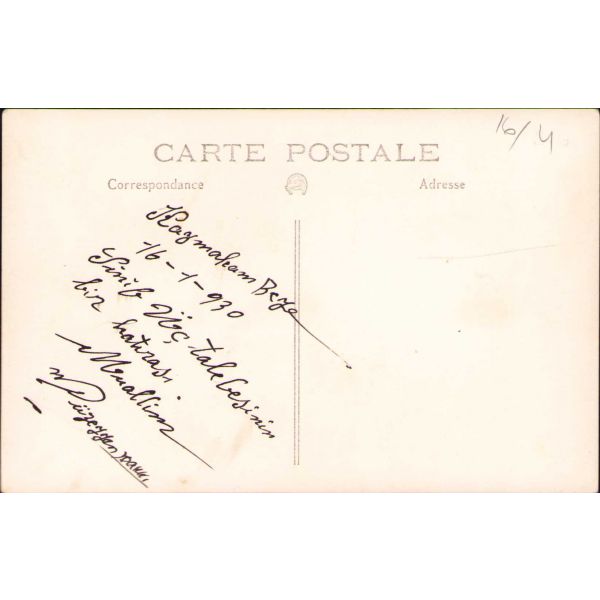 16/4
CARTE POSTALE
Correspondance
Adresse
Kaymakam Beye
16-1-930
Sinib Üç talebesinin
bir hatırası
Muallim